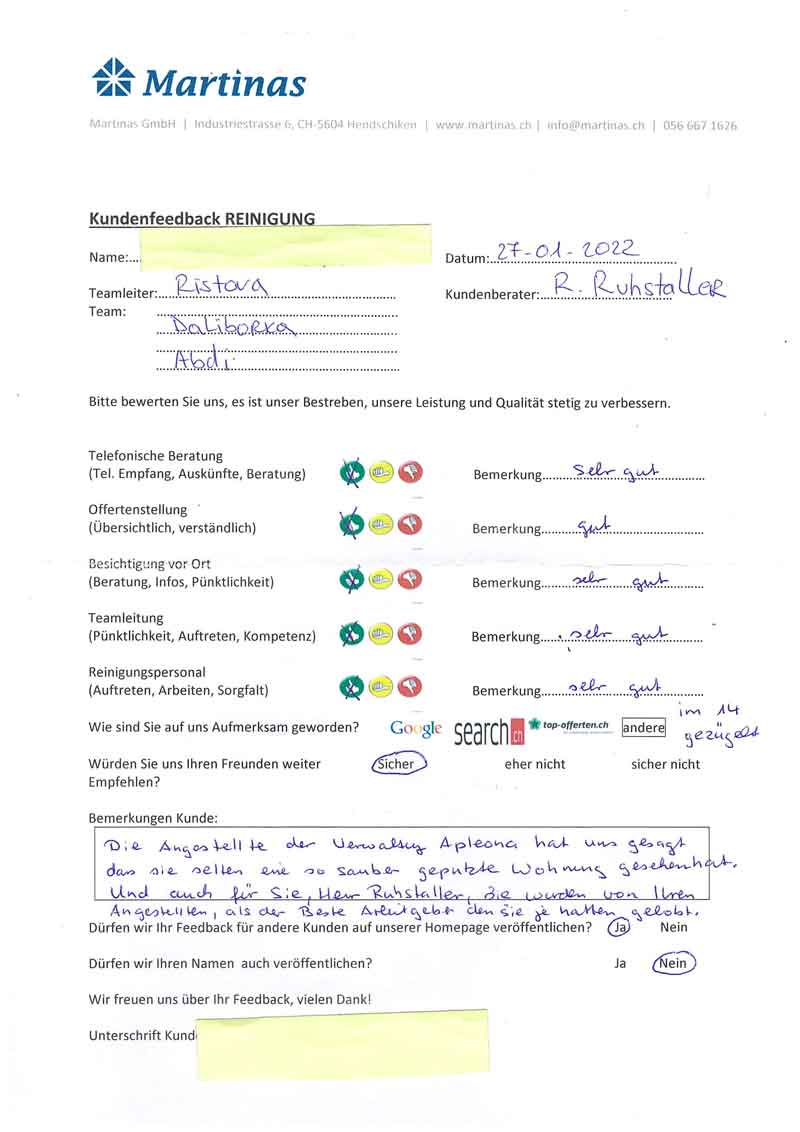 Martinas
Martinas GmbH | Industriestrasse 6, CH-5604 Hendschiken | www.martinas.ch | info@martinas.ch | 056 667 1626
Kundenfeedback REINIGUNG
Name:... Datum: 27-01-2022
Teamleiter: Ristova Kundenberater: R. Ruhstaller
Team:
Daliborka
Abdi
Bitte bewerten Sie uns, es ist unser Bestreben, unsere Leistung und Qualität stetig zu verbessern.
Telefonische Beratung
(Tel. Empfang, Auskünfte, Beratung) Bemerkung sehr gut
Offertenstellung
(Übersichtlich, verständlich) Bemerkung gut
Besichtigung vor Ort
(Beratung, Infos, Pünktlichkeit) Bemerkung sehr gut
Teamleitung
(Pünktlichkeit, Auftreten, Kompetenz) Bemerkung sehr gut
Reinigungspersonal
(Auftreten, Arbeiten, Sorgfalt) Bemerkung sehr gut
Wie sind Sie auf uns Aufmerksam geworden? Google search.ch top-offerten.ch andere im 14
gezügelt
Würden Sie uns Ihren Freunden weiter Sicher eher nicht sicher nicht
Empfehlen?
Bemerkungen Kunde:
Die Angestellte der Verwaltug Apleona hat uns gesagt
das sie selten eine so sauber geputzte Wohnung gesehen hat.
Und auch für Sie, Herr Ruhstaller, Sie wurden von Ihren
Angestellten, als der Beste Arbeitgeber den sie je hatten gelobt.
Dürfen wir Ihr Feedback für andere Kunden auf unserer Homepage veröffentlichen? Ja Nein
Dürfen wir Ihren Namen auch veröffentlichen? Ja Nein
Wir freuen uns über Ihr Feedback, vielen Dank!
Unterschrift Kund